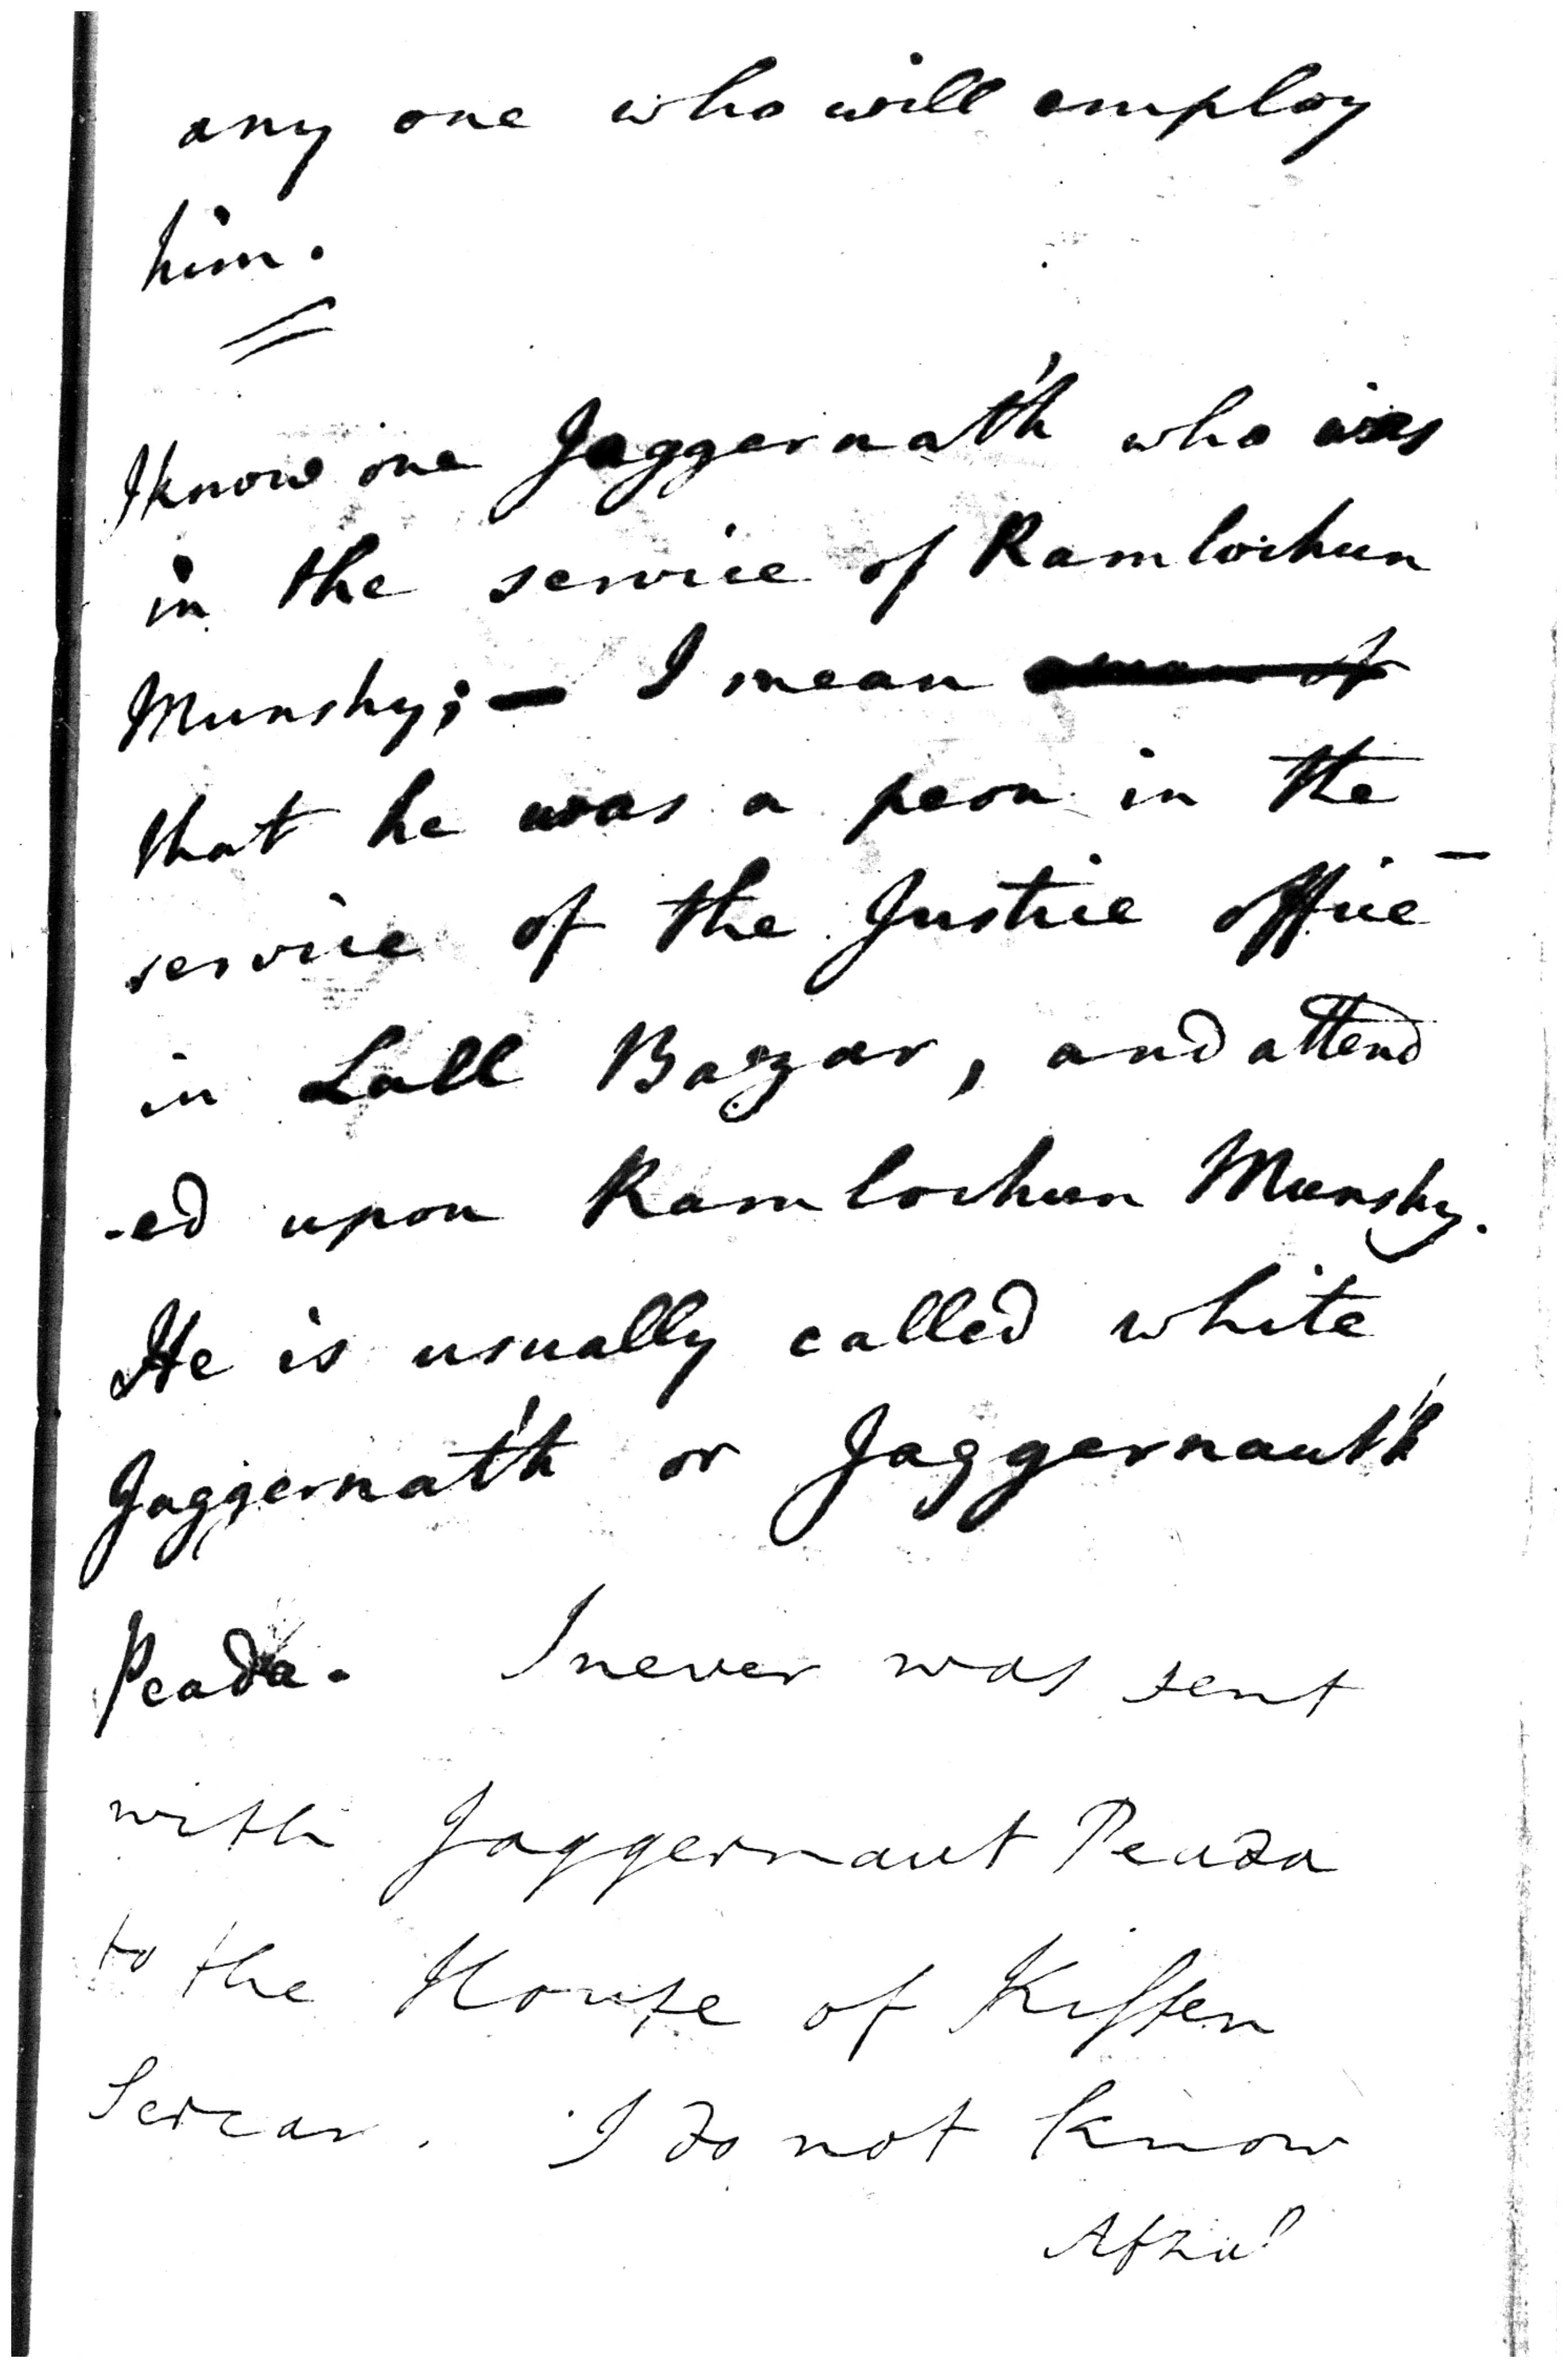 any one who will employ
him.
I know one Jaggernat'h who was
in the service of Ramlochun
Munshy; — I mean
that he was a peon in the
service of the Justice office —
in Lall Bazar, and attend
-ed upon Ramlochun Munshy.
He is usually called white
Jaggernat'h or Jaggernaut'h
Peada. I never was sent
with Jaggernaut Peada
to the House of Kissen
Sercar. I do not know
Afzul